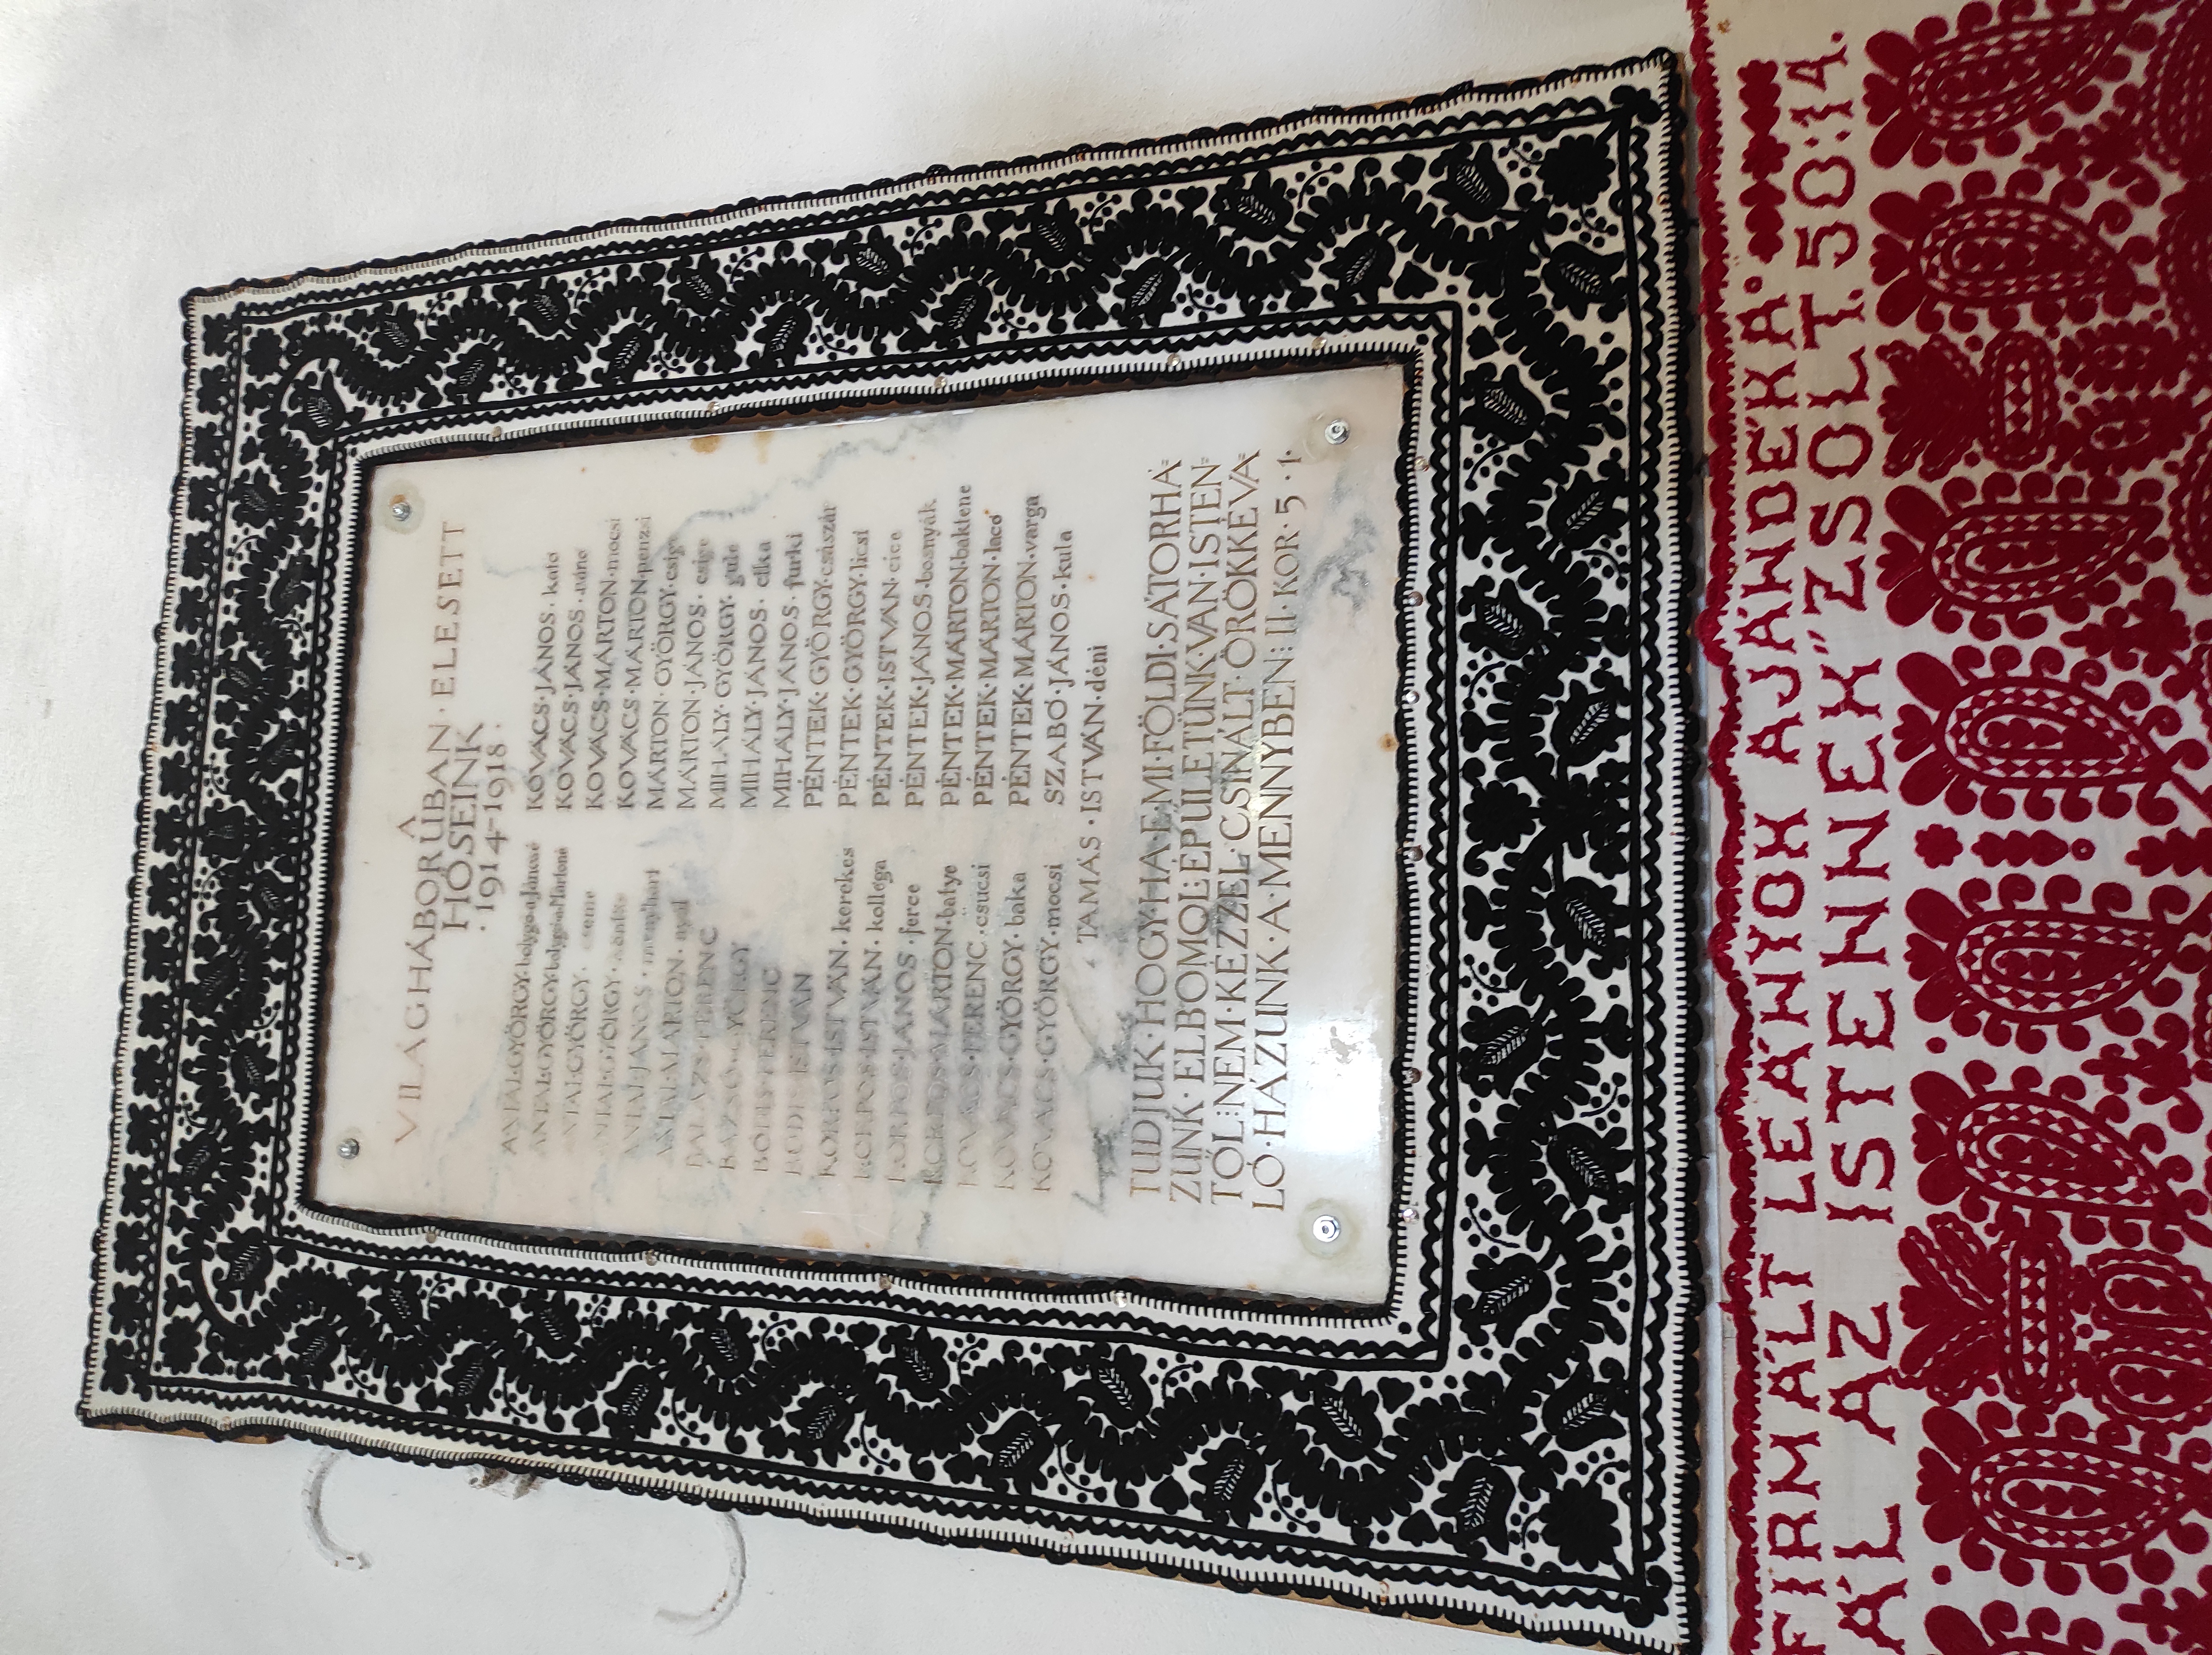 A
VILÁGHÁBORÚBAN · ELESETT
HŐSEINK
· 1914–1918 ·
ANTAL·GYÖRGY·
ANTAL·GYÖRGY·
ANTAL·GYÖRGY·
ANTAL·GYÖRGY·
ANTAL·JÁNOS·
ANTAL·MÁRTON·
BALÁZS·FERENC
GYÖRGY
FERENC
ISTVÁN
KORPOS·ISTVÁN·kerekes
KORPOS·ISTVÁN·kolléga
KORPOS·JÁNOS·ferce
KORPOS·MÁRTON·batye
KOVÁCS·FERENC·csucsi
KOVÁCS·GYÖRGY·baka
KOVÁCS·GYÖRGY·mocsi
KOVÁCS·JÁNOS·kató
KOVÁCS·JÁNOS·
KOVÁCS·MÁRTON·mocsi
KOVÁCS·MÁRTON·penzsi
MÁRTON·GYÖRGY·csige
MÁRTON·JÁNOS·csige
MIHÁLY·GYÖRGY·
MIHÁLY·JÁNOS·
MIHÁLY·JÁNOS·furki
PÉNTEK·GYÖRGY·császár
PÉNTEK·GYÖRGY·licsi
PÉNTEK·ISTVÁN·cice
PÉNTEK·JÁNOS·bosnyák
PÉNTEK·MÁRTON·baktene
PÉNTEK·MÁRTON·lacó
PÉNTEK·MÁRTON·varga
SZABÓ·JÁNOS·kula
TAMÁS·ISTVÁN·déni
TUDJUK·HOGY·HA·E·MI·FÖLDI·SÁTORHÁ=
ZUNK·ELBOMOL:ÉPÜLETÜNK·VAN·ISTEN=
TŐL:NEM·KÉZZEL·CSINÁLT·ÖRÖKKÉVA=
LÓ·HÁZUNK·A·MENNYBEN:II·KOR·5·1·
FIRMÁLT LEÁNYOK AJÁNDÉKA.
ÁL AZ ISTENNEK" ZSOLT. 50:14.